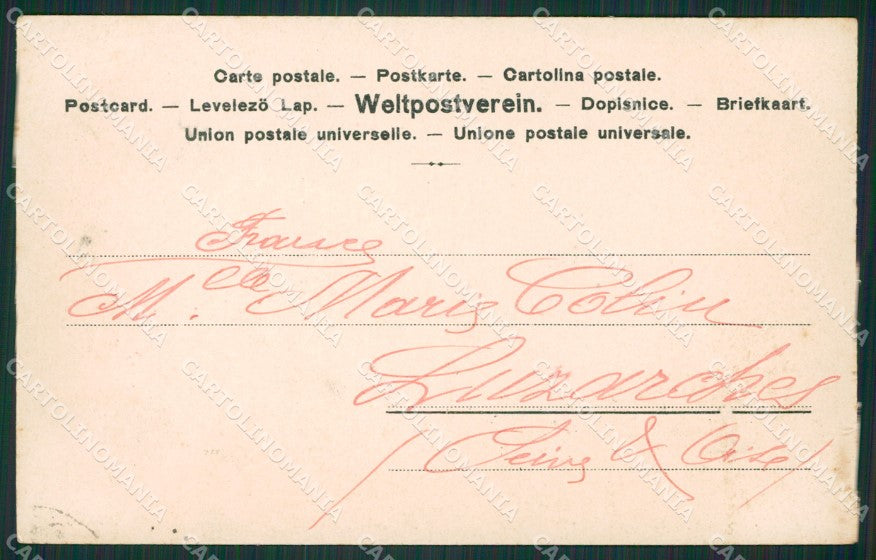 Carte postale. — Postkarte. — Cartolina postale.
Postcard. — Levelező Lap. — Weltpostverein. — Dopisnice. — Briefkaart.
Union postale universelle. — Unione postale universale.
France
M.elle Marie Colin
Luzarches
(Seine & Oise)
CARTOLINOMANIA